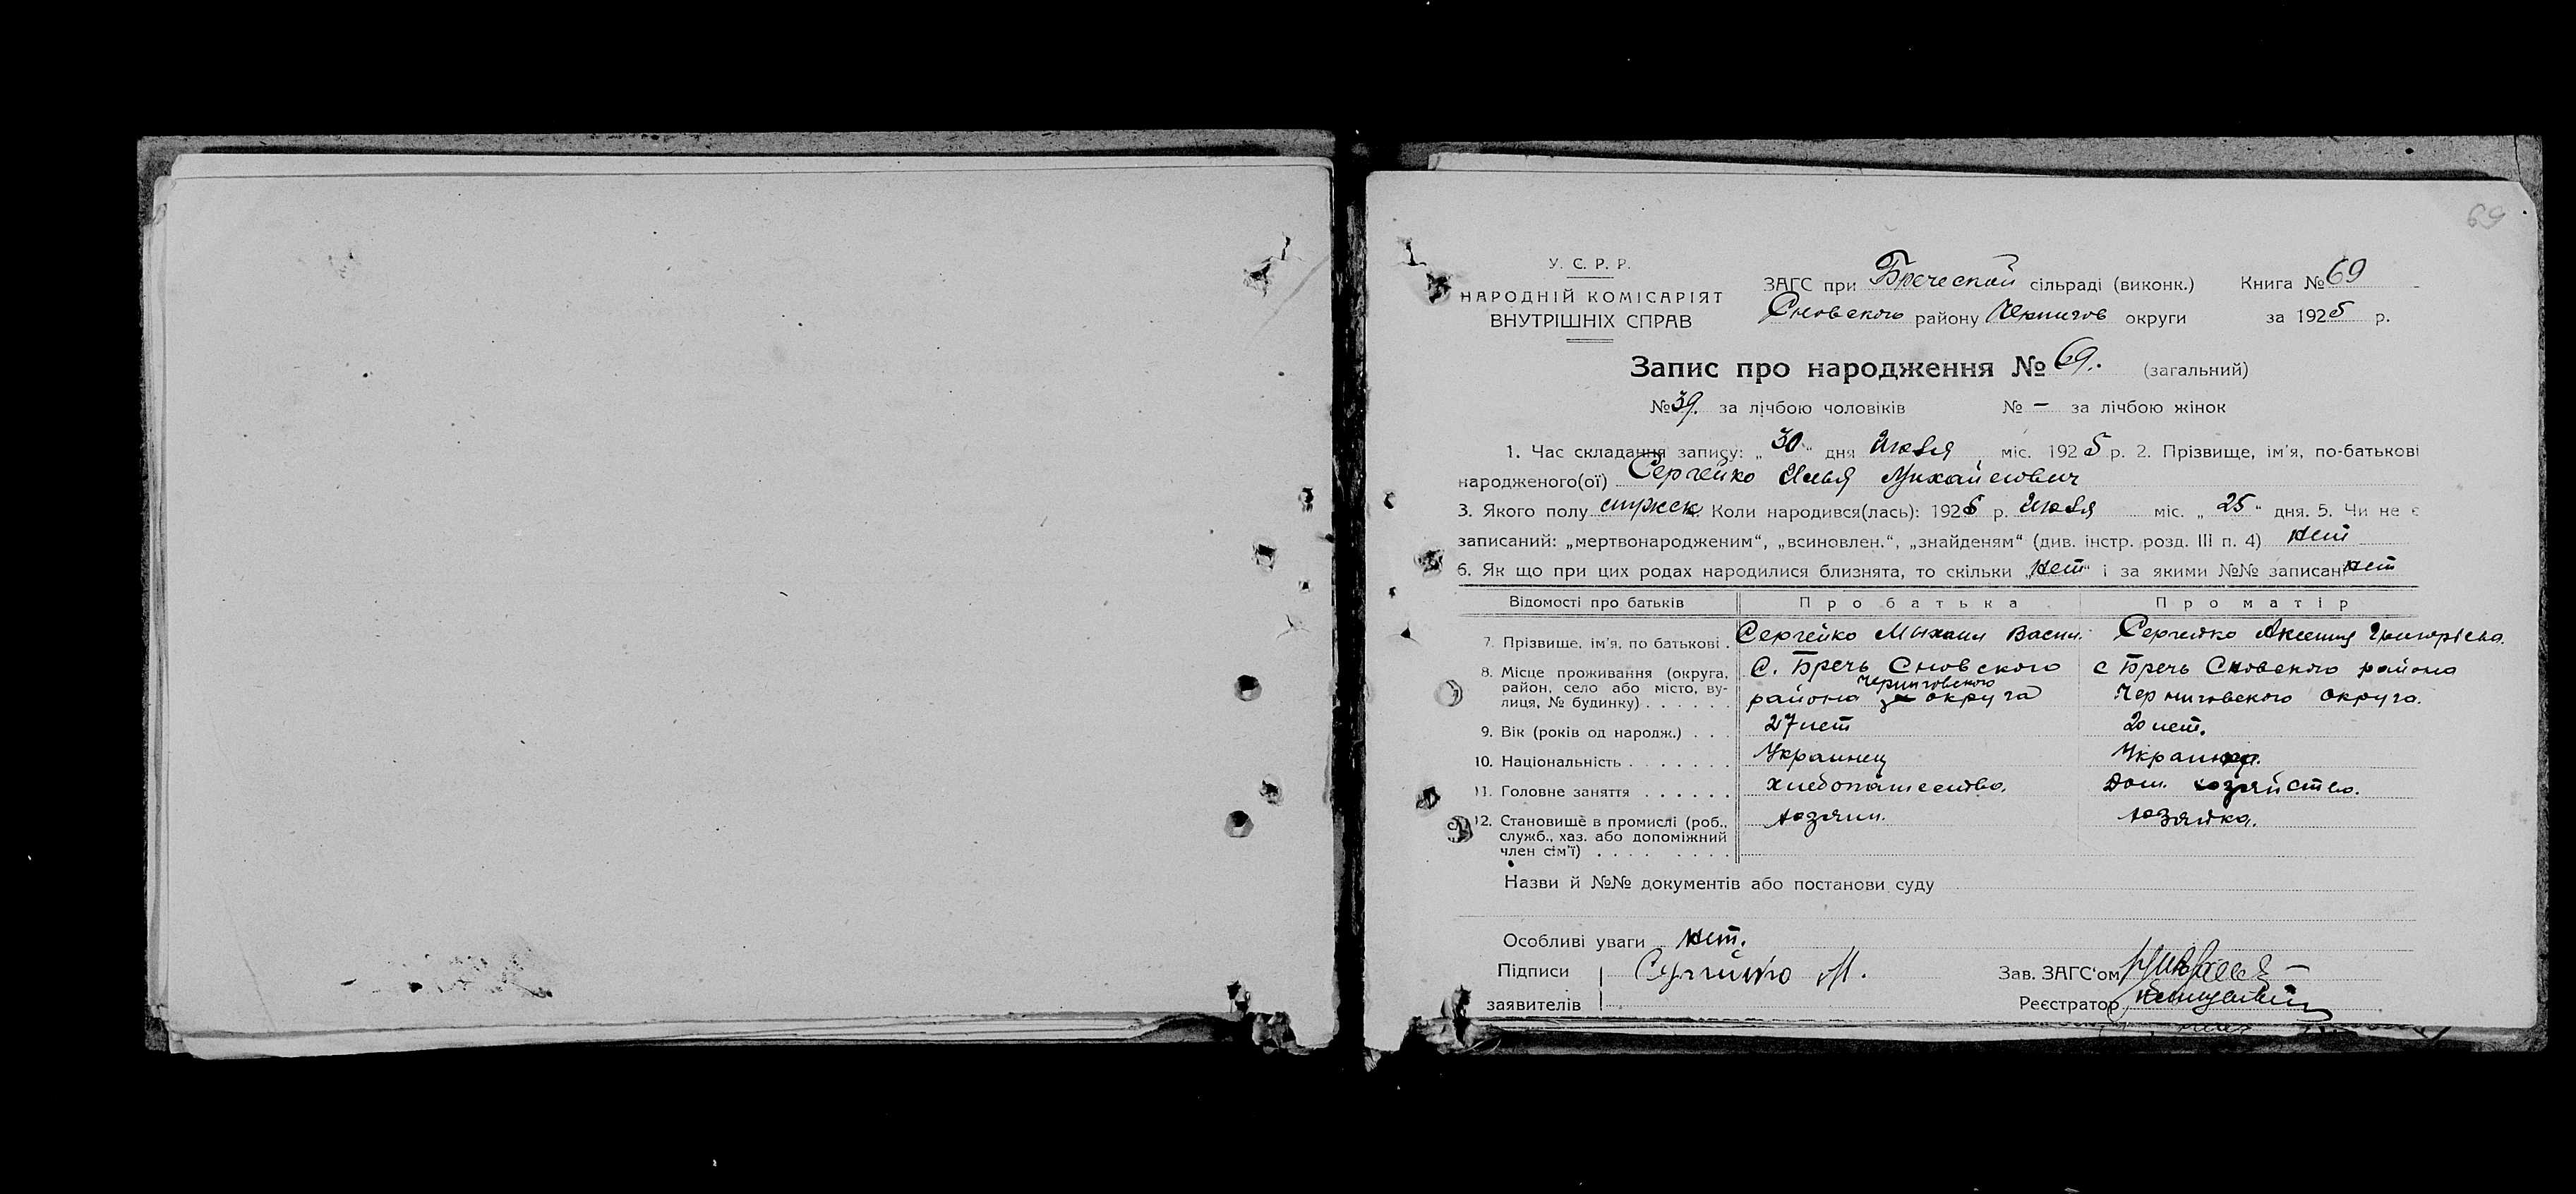 69
У. С. Р. Р.
НАРОДНІЙ КОМІСАРІЯТ
ВНУТРІШНІХ СПРАВ
ЗАГС при Бреческой сільраді (виконк.) Книга № 69
Сновского району Чернигов округи за 1925 р.
Запис про народження № 69. (загальний)
№ 39. за лічбою чоловіків № — за лічбою жінок
1. Час складання запису: „ 30 " дня Июля міс. 1925 р. 2. Прізвище, ім'я, по-батькові
народженого(ої) Сергейко Илья Михайлович
3. Якого полу Коли народився(лась): 1925 р. Июля міс. „ 25 " дня. 5. Чи не є
записаний: „мертвонародженим", „всиновлен.", „знайденям" (див. інстр. розд. III п. 4) нет
6. Як що при цих родах народилися близнята, то скільки „нет" і за якими №№ записані нет
Відомості про батьків Про батька Про матір
7. Прізвище, ім'я, по батькові . Сергейко Михаил Васил. Сергейко Аксения Григорьевна.
8. Місце проживання (округа, район, село або місто, вулиця, № будинку) . . . . . . С. Бречь Сновского района Черниговского округа с Бречь Сновского района Черниговского округа.
9. Вік (років од народж.) . . . 27 лет 20 лет.
10. Національність . . . . . . . Украинец Украинка.
11. Головне заняття . . . . . . хлебопашество. Дом. хозяйство.
12. Становище в промислі (роб., служб., хаз. або допоміжний член сім'ї) . . . . . . . . хозяин. хозяйка.
Назви й №№ документів або постанови суду
Особливі уваги нет.
Підписи Сергейко М. Зав. ЗАГС'ом
заявителів Реєстратор